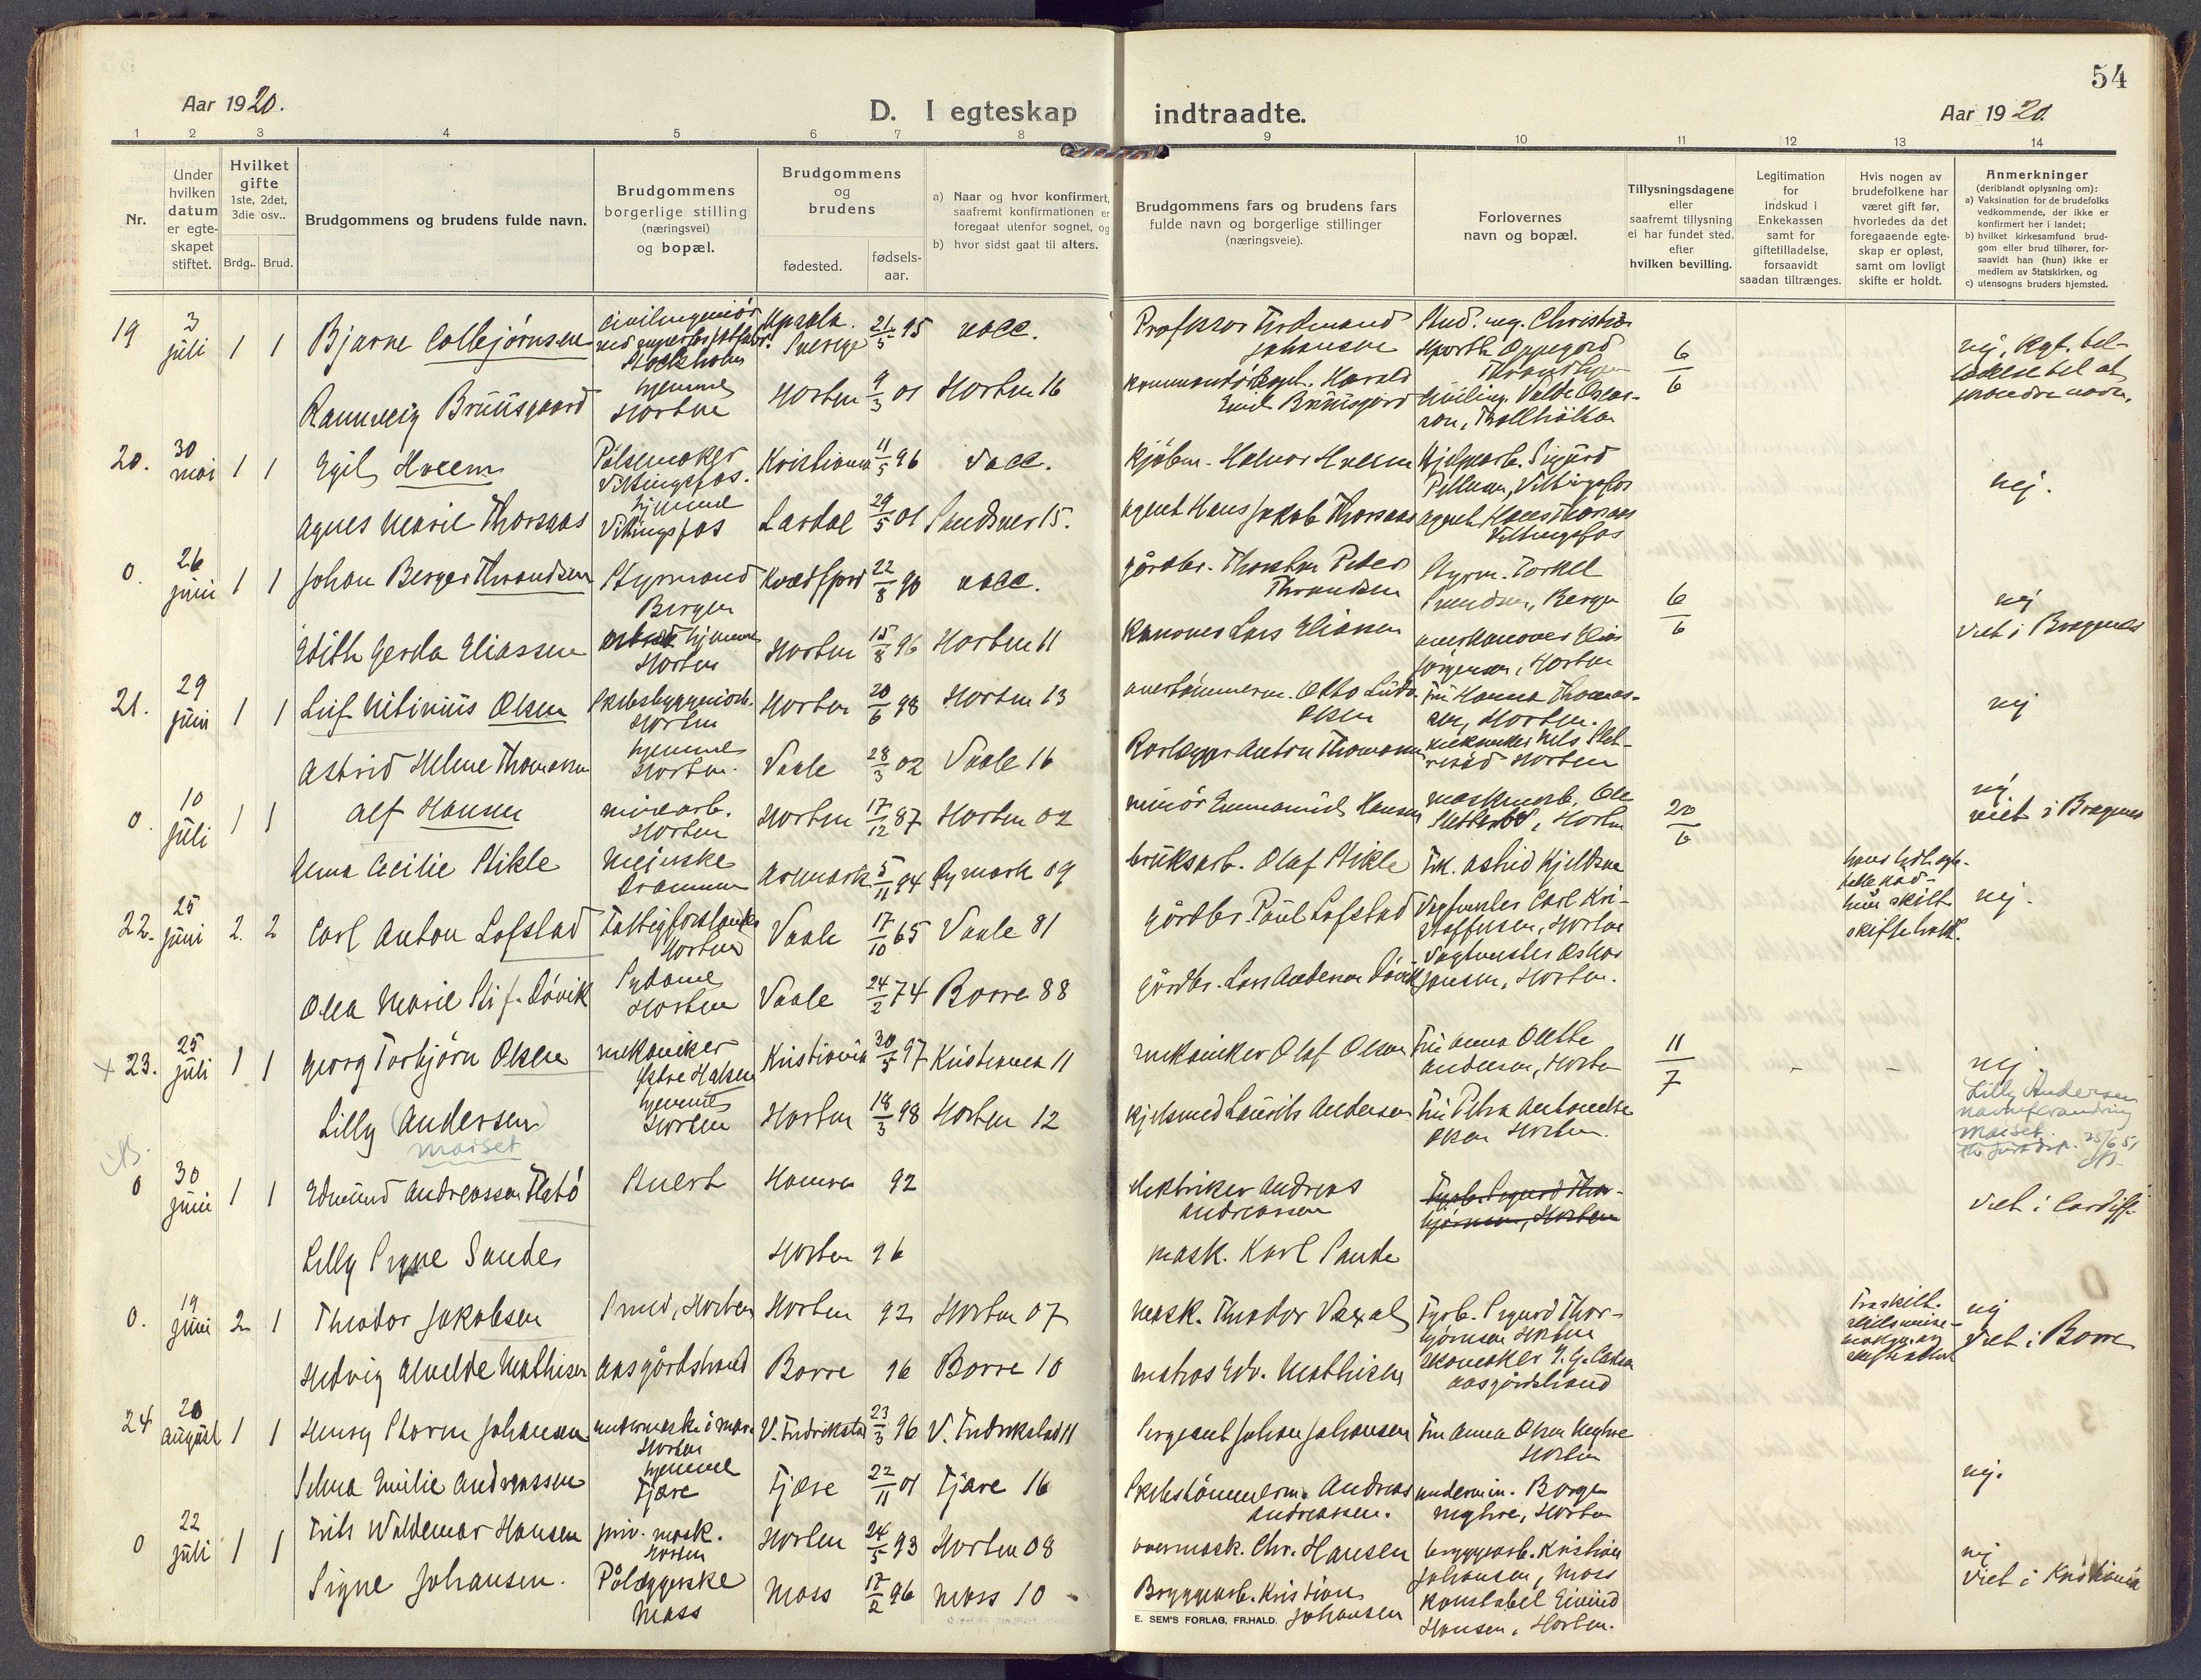 54
Aar 1920.
D. I egteskap indtraadte.
Aar 1920
1 2 3 4 5 6 7 8 9 10 11 12 13 14
Nr.
Under hvilken datum er egte-skapet stiftet.
Hvilket gifte 1ste, 2det, 3die osv..
Brdg.. Brud.
Brudgommens og brudens fulde navn.
Brudgommens borgerlige stilling (næringsvei) og bopæl.
Brudgommens og brudens
fødested.
fødsels-aar.
a) Naar og hvor konfirmert, saafremt konfirmationen er foregaat utenfor sognet, og
b) hvor sidst gaat til alters.
Brudgommens fars og brudens fars fulde navn og borgerlige stillinger (næringsveie).
Forlovernes navn og bopæl.
Tillysningsdagene eller saafremt tillysning ei har fundet sted, efter hvilken bevilling.
Legitimation for indskud i Enkekassen samt for giftetilladelse, forsaavidt saadan tiltrænges.
Hvis nogen av brudefolkene har været gift før, hvorledes da det foregaaende egte-skap er opløst, samt om lovligt skifte er holdt.
Anmerkninger (deriblandt oplysning om):
a) Vaksination for de brudefolks vedkommende, der ikke er konfirmert her i landet;
b) hvilket kirkesamfund brud-gom eller brud tilhører, for-saavidt han (hun) ikke er medlem av Statskirken, og
c) utensogns bruders hjemsted.
19 3 juli 1 1 Bjarne Colbjørnsen
civilingeniør
Stockholm
Upsala. Sverige 21/5 95 vacc.
Professor
Johansen
6/6
nej, Kgl. bel-
Rannveig Bruusgaard hjemme Horten Horten 9/3 01 Horten 16
Harald Emil Bruusgård
20. 30 mai 1 1 Egil Hveem Pølsemaker Vittingfos. Kristiania 11/5 96 vacc.
Kjøbm. Halvor Hveem
Sigurd Pettersen, Vittingsfos
nej.
Agnes Marie Thorsaas hjemme Vittingsfos Lardal 29/5 01 Sandsvær 15.
agent Hans Jakob Thorsaas
agent Hans Thorsaas Vittingsfos
0. 26 juni 1 1 Johan Berger Throndsen Styrmand Bergen Kvædfjord 22/8 90 vacc.
gårdbr. Thorsten Peder Throndsen
Styrm. Torkel Svendsen, Bergen
6/6
nej
viet i Bragenes
Edith Gerda Eliassen hjemme Horten Horten 15/8 96 Horten 11
Kanoner Lars Eliassen
overkanoner Elias Jørgensen, Horten
21. 29 juni 1 1 Leif Olsen
Horten Horten 20/6 98 Horten 13
overtømmerm. Otto Ludv. Olsen
Fru Hanna Thomas-
sen, Horten.
nej
Astrid Helene Thomassen hjemme Horten. Vaale 28/3 02 Vaale 16
Rørlægger Anton Thomassen
Horten
0. 10 juli 1 1 Alf Hansen minearb. Horten Horten 17/12 87 Horten 02
minør Emmanuel Hansen
maskinarb. Ole
Horten
20/6
nej
viet i Bragenes
Anna Cecilie Stikle Meierske Drammen Aremark 5/11 94 Rymark 09
bruksarb. Olaf Stikle
Frk. Astrid Kjeldsen
22. 25 juni 2. 2 Carl Anton Lofstad Fattigforstander Horten Vaale 17/10 65 Vaale 81
gårdbr. Paul Lofstad
Vagtmester Carl Kri-
stoffersen, Horten
hun skilt
skifte holdt.
nej.
Olea Marie f. Døvik Sydame Horten Vaale 24/2 74 Borre 88
gårdbr. Lars Andersen Døvik
Vagtmester Oskar Jansen, Horten.
x 23. 25 juli 1 1 Georg Torbjørn Olsen mekaniker Østre Halsen Kristiania 30/5 97 Kristiania 11
mekaniker Olaf Olsen
Fru Anna Olette Andersen, Horten
11/7 - -
nej
Lilly (Andersen) hjemme Horten Horten 18/3 98 Horten 12
Maiset
kjelsmed Laurits Andersen
Fru Petra Antonette Olsen Horten.
Lilly Andersen
navneforandring
Maiset.
25/6 51
0 30 juni 1 1 Edmund Andreassen Flatø Stuert Hamre 92
elektriker Andreas Andreassen
Fyrb. Sigurd Thor-
bjørnsen, Horten
viet i Cardiff.
Lilly Signe Sandes Horten 96
mask. Karl Sande
0. 19 juni 2 1 Theodor Jakobsen Smed, Horten Horten 92 Horten 07
mask. Theodor
Fyrb. Sigurd Thor-
bjørnsen Horten
Fraskilt.
nej
viet i Borre
Hedvig Alvilde Mathisen Aasgårdstrand Borre 96 Borre 10
matros Edv. Mathisen
skomaker Carlsen
Aasgårdstrand
24 20 august 1 1 Henry Storm Johansen Horten V. Fredrikstad 23/3 96 V. Fredrikstad 11
Sergeant Johan Johansen
Fru Anna Olsen Horten
Selma Emilie Andreassen hjemme Tjøre Tjøre 22/11 01 Tjøre 16
Skibstømmerm. Andreas Andreassen.
underm. Borge Horten
nej.
0 22 juli 1 1 Frits Waldemar Hansen priv. mask. Horten Horten 24/5 93 Horten 08
overmask. Chr. Hansen
bryggearb. Kristian Johansen, Moss
nej
viet i Kristiania
Signe Johansen. Pålæggerske Moss Moss 17/2 96 Moss 10 -
Bryggearb. Kristian Johansen
Konstabel Eivind Hansen, Horten.
E. SEM'S FORLAG, FR.HALD.